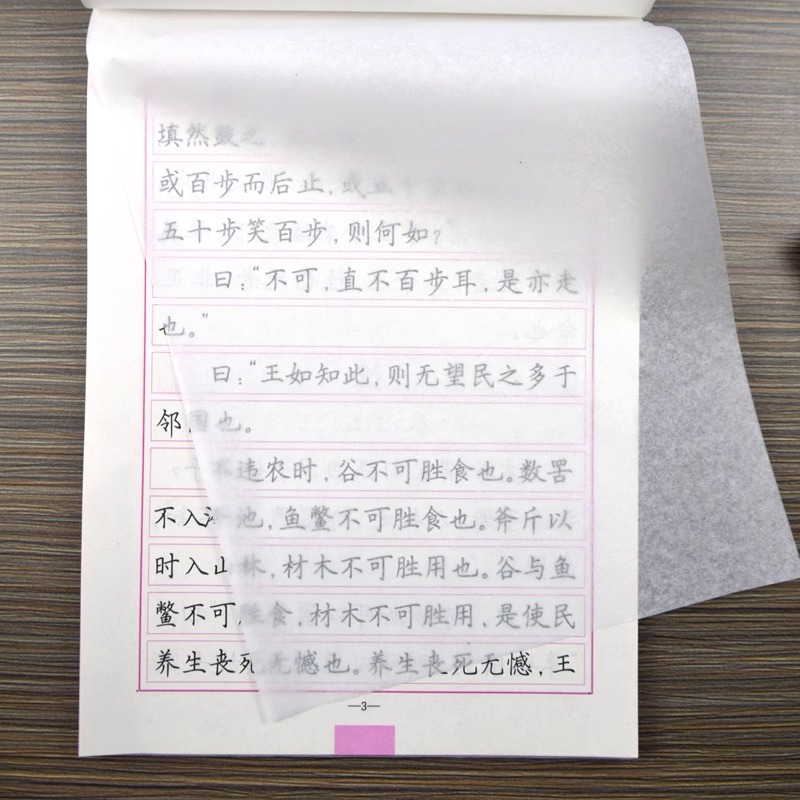 填然鼓之
或百步而后止，或五十步
五十步笑百步，则何如？
曰：“不可，直不百步耳，是亦走
也。”
曰：“王如知此，则无望民之多于
邻国也。
不违农时，谷不可胜食也。数罟
不入洿池，鱼鳖不可胜食也。斧斤以
时入山林，材木不可胜用也。谷与鱼
鳖不可胜食，材木不可胜用，是使民
养生丧死无憾也。养生丧死无憾，王
—3—